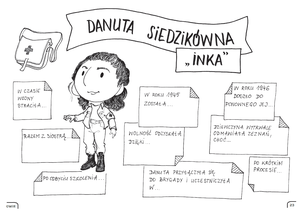 DANUTA SIEDZIKÓWNA
„INKA”
W CZASIE
WOJNY
STRACIŁA...
RAZEM Z SIOSTRĄ...
PO ODBYCIU SZKOLENIA...
W ROKU 1945
ZOSTAŁA...
WOLNOŚĆ ODZYSKAŁA
DZIĘKI...
DANUTA PRZYŁĄCZYŁA SIĘ
DO BRYGADY I UCZESTNICZYŁA
W...
W ROKU 1946
DOSZŁO DO
PONOWNEGO JEJ...
DZIEWCZYNA
ODMAWIAŁA ZEZNAŃ,
CHOĆ...
PO KRÓTKIM
PROCESIE...